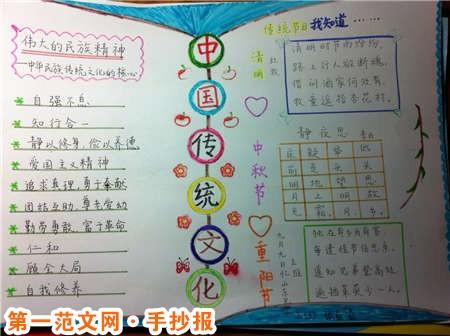 伟大的民族精神
—中华民族传统文化的核心
自强不息
知行合一
静以修身,俭以养德
爱国主义精神
追求真理,勇于奉献
团结互助,尊老爱幼
勤劳勇敢,富于革命
仁和
顾全大局
自我修养
中国传统文化
传统节日我知道……
清明
杜牧
清明时节雨纷纷,
路上行人欲断魂。
借问酒家何处有,
牧童遥指杏花村。
中秋节
静夜思
床疑举低
前是头头
明地望思
月上明故
光霜月乡
重阳节
九月九日忆山东
王维
每逢佳节倍思亲。
遥知兄弟登高处,
遍插茱萸少一人。
第一范文网·手抄报